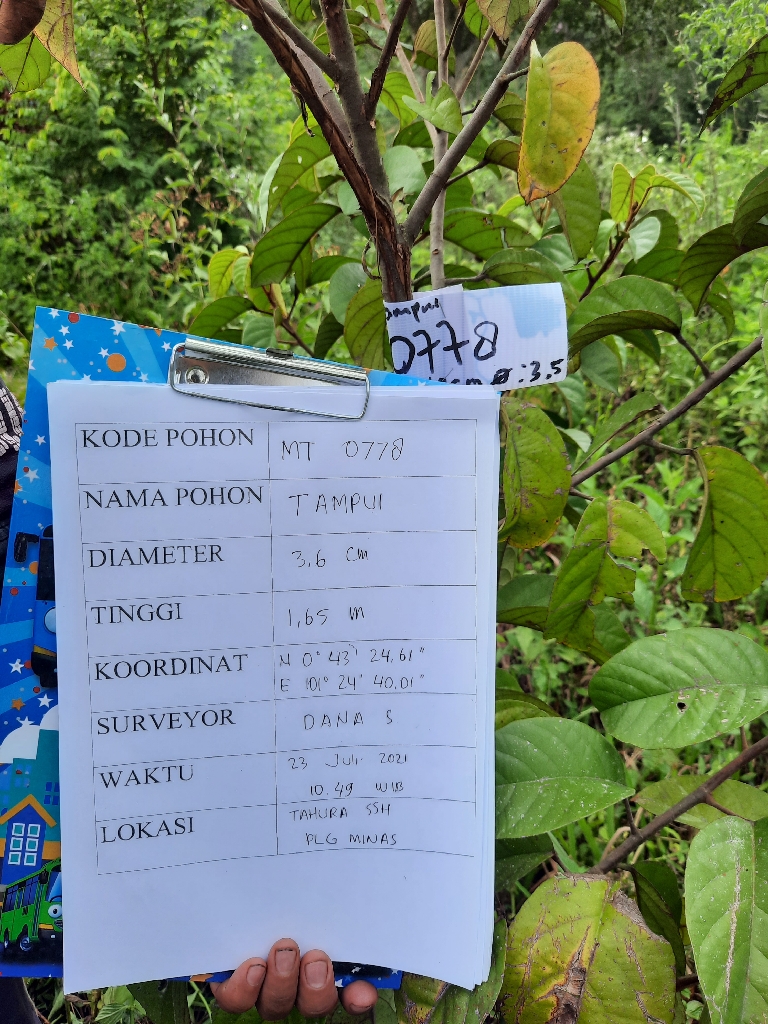 ampui
0778
cm ø:3.5
KODE POHON MT 0778
NAMA POHON TAMPUI
DIAMETER 3,6 cm
TINGGI 1,65 m
KOORDINAT N 0° 43' 24,61"
E 101° 24' 40,01"
SURVEYOR DANA S
WAKTU 23 Juli 2021
10.49 WIB
LOKASI TAHURA SSH
PLG MINAS